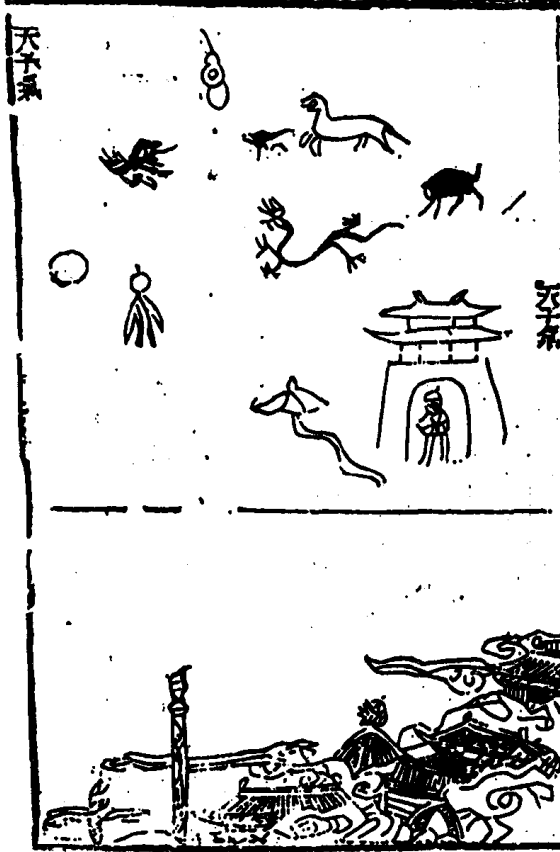 天子氣
天子氣